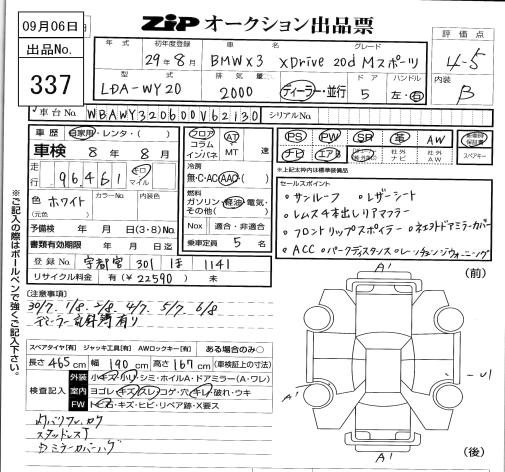 09月06日
ZIP オークション出品票
出品No.
337
年式 初年度登録 車名 グレード
29年8月 BMW X3 XDrive 20d Mスポーツ
型式 排気量 ドア ハンドル
LDA-WY20 2000 ディーラー・並行 5 左・右
評価点
4-5
内装
B
車台No. WBAWY320600V62130 シリアルNo.
車歴 自家用・レンタ・( )
車検 8年8月
走行 96,461 キロ マイル
色 ホワイト カラーNo. 内装色
(元色)
予備検 年 月 日(3・8)No.
書類有効期限 年 月 日迄
登録No. 宇都宮 301 ほ 1141
リサイクル料金 有(¥22590) 未
フロア コラム インパネ AT MT 速
冷房
無・C・AC・AAC
燃料
ガソリン・軽油・電気・その他( )
Nox 適合・非適合
乗車定員 5 名
PS PW SR 革 AW
ナビ エアB 社外ナビ 社外AW
スペアキー
※上記太枠内は標準装備品
セールスポイント
・サンルーフ ・レザーシート
・レムス4本出しリアマフラー
・ACC ・パークディスタンス・レーンチェンジウォーニング
※ご記入の際はボールペンで強くご記入下さい。
(注意事項)
30/7 1/8 2/8 4/7 5/7 6/8
ディーラー記録簿有り
スペアタイヤ[有] ジャッキ工具[有] AWロックキー[有] ある場合のみ○
長さ 465 cm 幅 190 cm 高さ 167 cm (車検証上の寸法)
検査記入
外装 小キズ・小凹・シミ・ホイルA・ドアミラー(A・ワレ)
室内 ヨゴレ・キズ・スレ・コゲ・穴・キレ・破れ・ウキ
FW ト石・キズ・ヒビ・リペア跡・X要ス
スタッドレス
ミラーカバー
(前)
A'
A'
A'
(後)